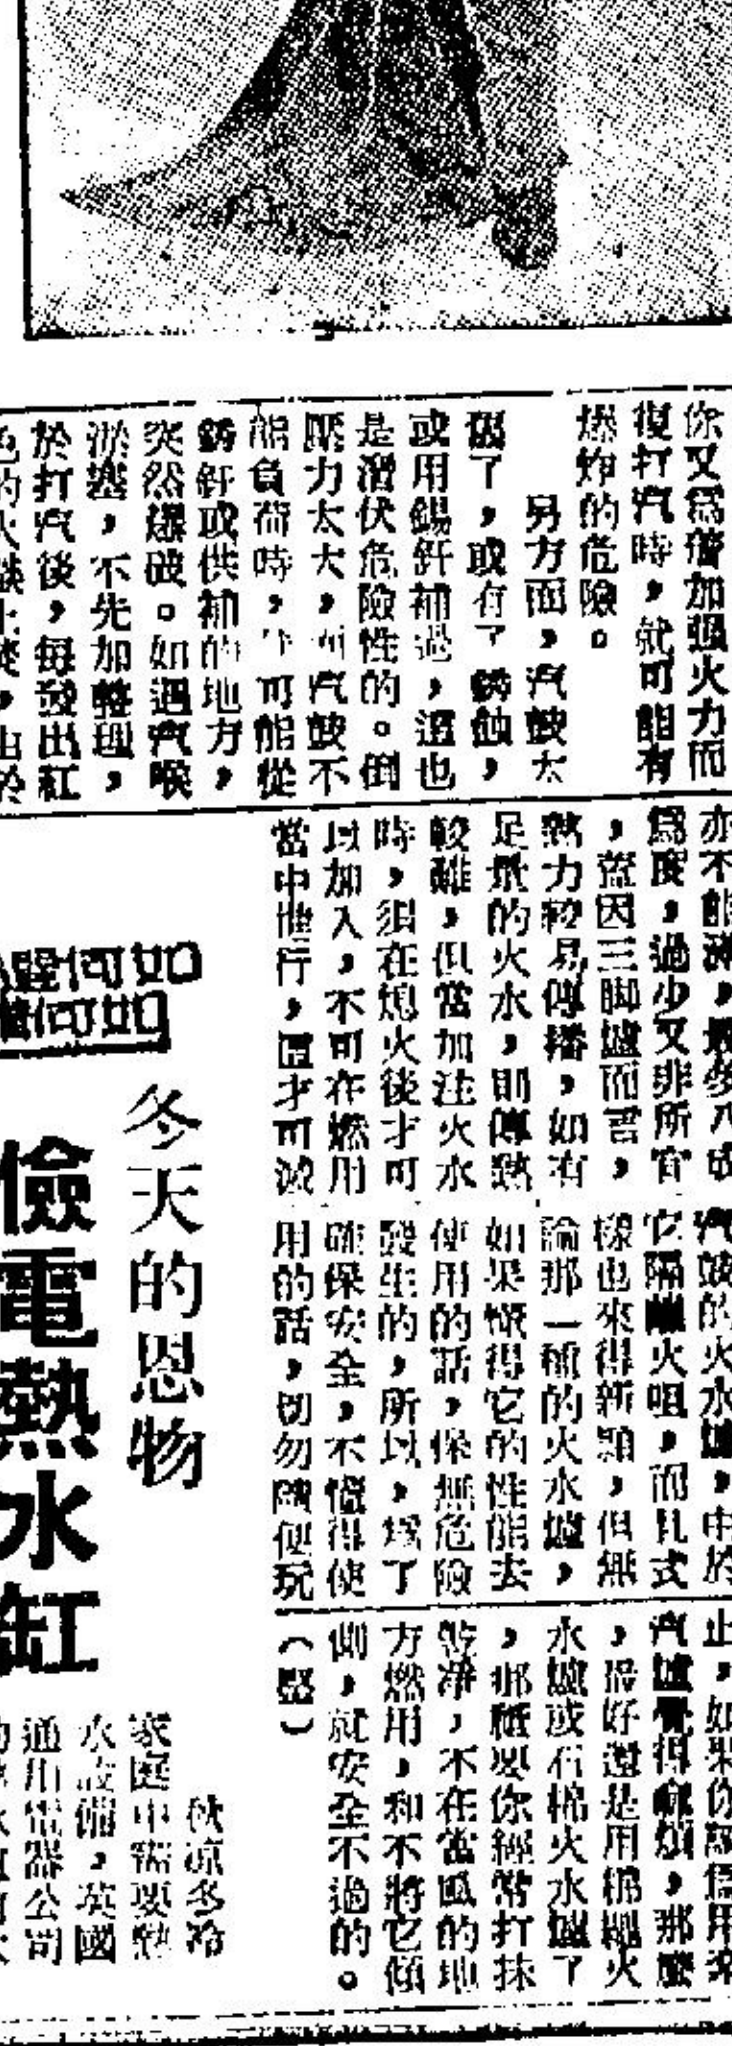 你又為着加强火力而
復打汽時，就可能有
爆炸的危險。
另方面，汽鼓太
舊了，或有了銹蝕，
或用錫釬補過，這也
是潛伏危險性的。倒
壓力太大，而汽鼓不
能負荷時，可能從
銹釬或供補的地方，
突然爆破。如遇汽喉
淤塞，不先加整理，
於打汽後，每發出紅
色的火燄上
亦不能滿，最多八成
為度，過少又非所宜
，蓋因三脚爐而言，
熱力較易傳播，如有
足量的火水，則傳熱
較離，但當加注火水
時，須在熄火後才可
以加入，不可在燃用
當中進行，這才可減
汽鼓的火水爐，由於
它隔離火咀，而且式
樣也來得新穎，但無
論那一種的火水爐，
如果懂得它的性能去
使用的話，保無危險
發生的，所以，為了
確保安全，不懂得使
用的話，切勿隨便玩
止，如果你認為用
汽爐覺得麻煩，那麼
，最好還是用棉繩火
水爐或石棉火水爐了
，那祗要你經常打抹
乾淨，不在當風的地
方燃用，和不將它傾
側，就安全不過的。
（堅）
如何
如何
冬天的恩物
儉電熱水缸
秋凉冬冷
家庭中需要熱
水設備，英國
通用電器公司